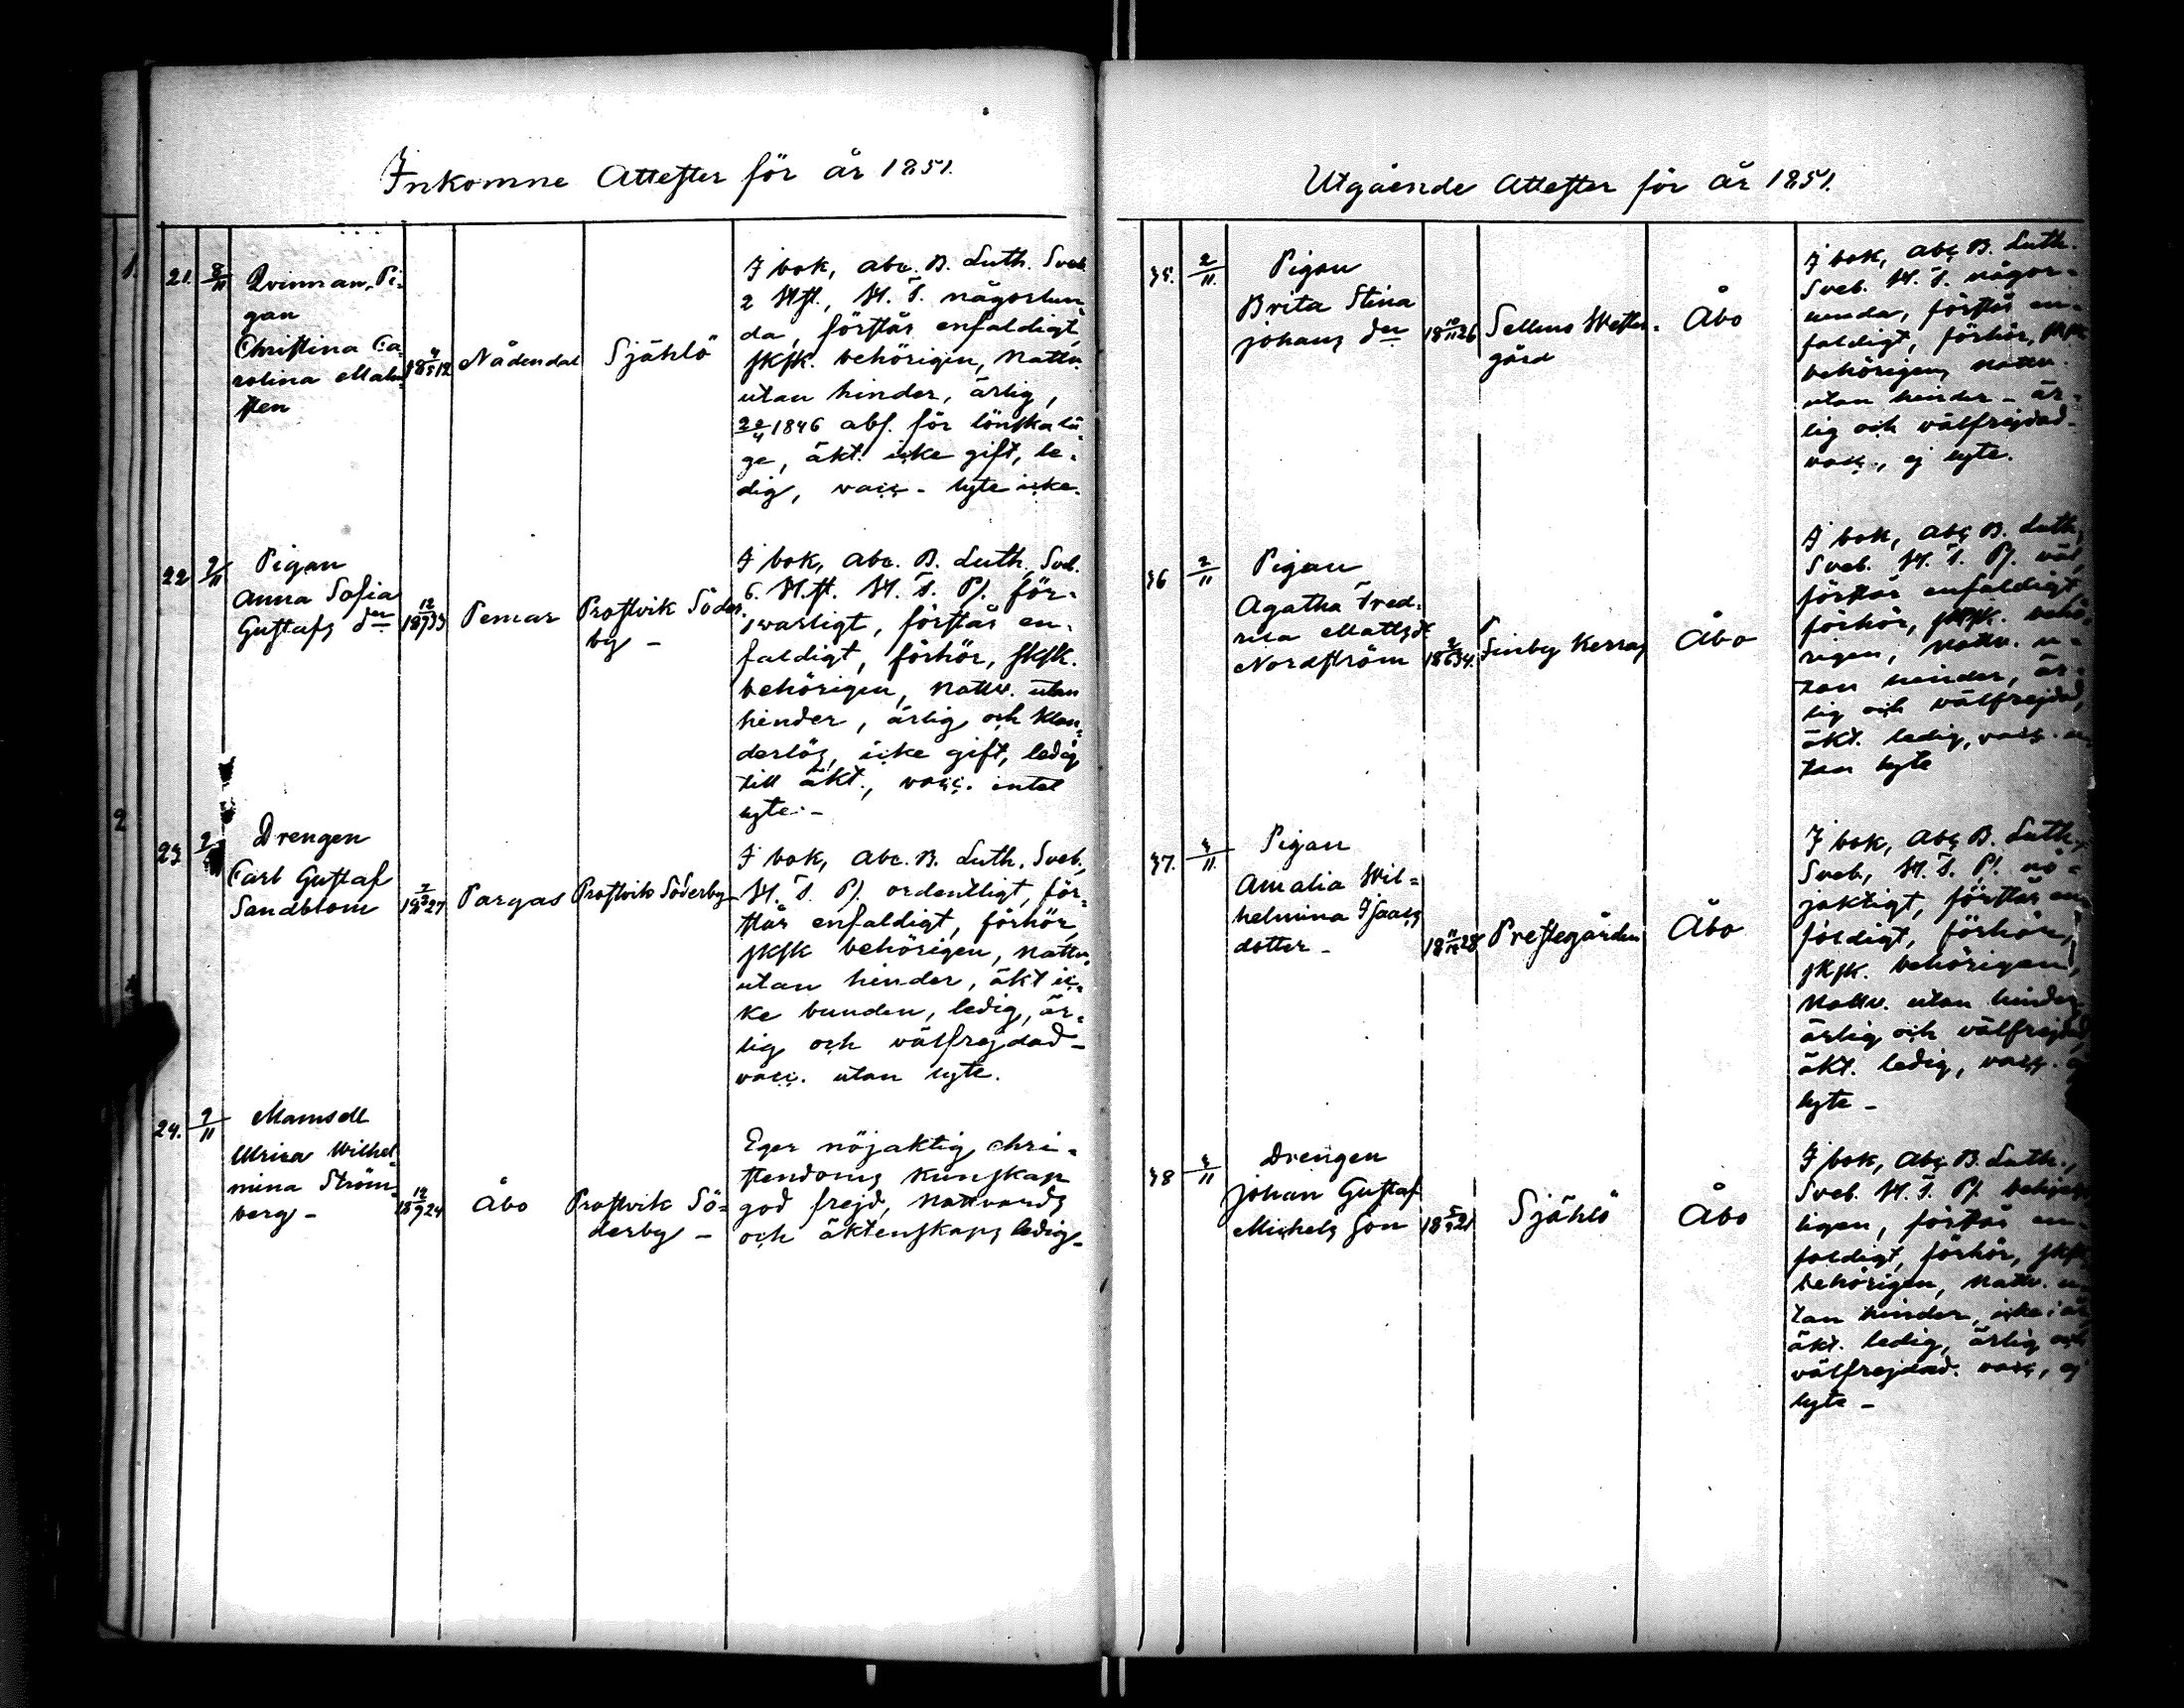 Inkomne Attester för år 1851.
21. 2/11
Qvinnan, Pi-
gan
Christina Ca-
rolina Malm-
sten
18 4/5 12
Nådendal
Själlö
I bok, Abc. B. Luth. Sveb.
2 H.st., H. T. någorlun-
da, förstår enfaldigt,
sksk. behörigen, Nattv.
utan hinder, ärlig,
22/4 1846 abs. för lönskalä-
ge, äkt. icke gift, le-
dig, vacc. - lyte icke.
22 7/11
Pigan
Anna Sofia
Gustafs dr
18 12/7 33
Pemar
Prostvik Söder-
by -
I bok, Abc. B. Luth. Sveb.
6. H.st. H. T. Ps. för-
svarligt, förstår en-
faldigt, förhör, sksk.
behörigen, Nattv. utan
hinder, ärlig och klan-
derlös, icke gift, ledig
till äkt., vacc. intet
lyte. -
23
Drengen
Carl Gustaf
Sandblom
27
Pargas
Prostvik Söderby
I bok, Abc. B. Luth. Sveb,
H. T. Ps. ordentligt, för-
står enfaldigt, förhör,
sksk behörigen, Nattv.
utan hinder, äkt ic-
ke bunden, ledig, är-
lig och välfrejdad -
vacc. utan lyte.
24. 7/11
Mamsell
Ulrica Wilhel-
mina Ström-
berg -
18 12/9 24
Åbo
Prostvik Sö-
derby -
Eger nöjaktig Chri-
stendoms kunskap
god frejd, Nattvards
och äktenskaps ledig -
Utgående Attester för år 1851.
35. 2/11.
Pigan
Brita Stina
Johans dr
18 10/11 26
Sellmo Wester-
gård
Åbo
I bok, Abc B. Luth.
Sveb. H. T. någor-
lunda, förstår en-
faldigt, förhör, sksk
behörigen, Nattv.
utan hinder - är-
lig och välfrejdad -
vacc., ej lyte.
36 2/11
Pigan
Agatha Fred-
rica Matts dr
Nordström
34.
Finby Kerras
Åbo
I bok, Abc B. Luth.
Sveb. H. T. Ps. väl,
förstår enfaldigt,
förhör, sksk. behö-
rigen, Nattv. u-
tan hinder, är-
lig och välfrejdad,
äkt. ledig, vacc. u-
tan lyte
37. 4/11.
Pigan
Amalia Wil-
helmina Isaacs
dotter -
28
Prestegården
Åbo
I bok, Abc B. Luth.,
Sveb, H. T. Ps. nö-
jaktigt, förstår en-
faldigt, förhör,
sksk. behörigen,
Nattv. utan hinder,
ärlig och välfrejdad,
äkt. ledig, vacc. ej
lyte -
38 4/11
Drengen
Johan Gustaf
Michels Son
21
Själlö
Åbo
I bok, Abc B. Luth.,
Sveb. H. T. Ps.
ligen, förstår en-
faldigt, förhör, sksk
behörigen, Nattv. u-
tan hinder, icke i
äkt. ledig, ärlig och
välfrejdad. vacc, ej
lyte -